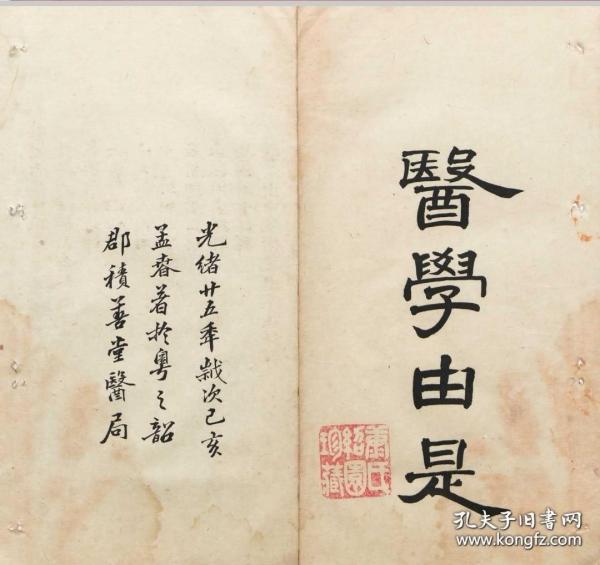 醫學由是
蕭氏
紹園
珍藏
光緒廿五年歲次己亥
孟春著於粵之韶
郡積善堂醫局
孔夫子旧书网
www.kongfz.com